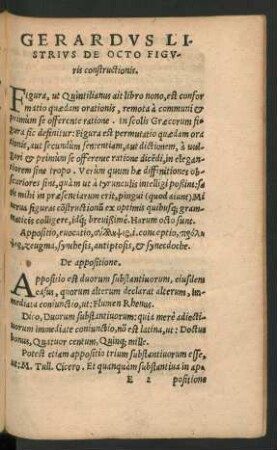 GERARDVS LI-
STRIVS DE OCTO FIGV-
ris constructionis.
Figura, ut Quintilianus ait libro nono, est confor
matio quædam orationis, remota à communi &
primùm se offerente ratione. In scolis Græcorum fi-
gura sic definitur: Figura est permutatio quædam ora
tionis, aut secundum sententiam, aut dictionem, à uul-
gari & primùm se offerente ratione dicẽdi, in elegan-
tiorem sine tropo. Verùm quum hæ diffinitiones ob-
scuriores sint, quàm ut à tyrunculis intelligi possint: sa
tis mihi in præsenciarum erit, pingui (quod aiunt) Mi
nerua figuras cõstructionũ ex optimis quibusq; gram-
maticis colligere, idq; breuissimè. Harum octo sunt.
Appositio, euocatio, σύλληψις .i. conceptio, πρόλη-
ψις, zeugma, synthesis, antiptosis, & synecdoche.
De appositione.
Appositio est duorum substantiuorum, eiusdem
casus, quorum alterum declarat alterum, im-
mediata coniunctio, ut: Flumen Rhenus.
Dico, Duorum substantiuorum: quia merè adiecti-
uorum immediate coniunctio, nõ est latina, ut: Doctus
bonus, Quatuor centum, Quinq; mille.
Potest etiam appositio trium substantiuorum esse,
ut: M. Tull. Cicero. Et quanquàm substantiua in ap-
E 2 positione